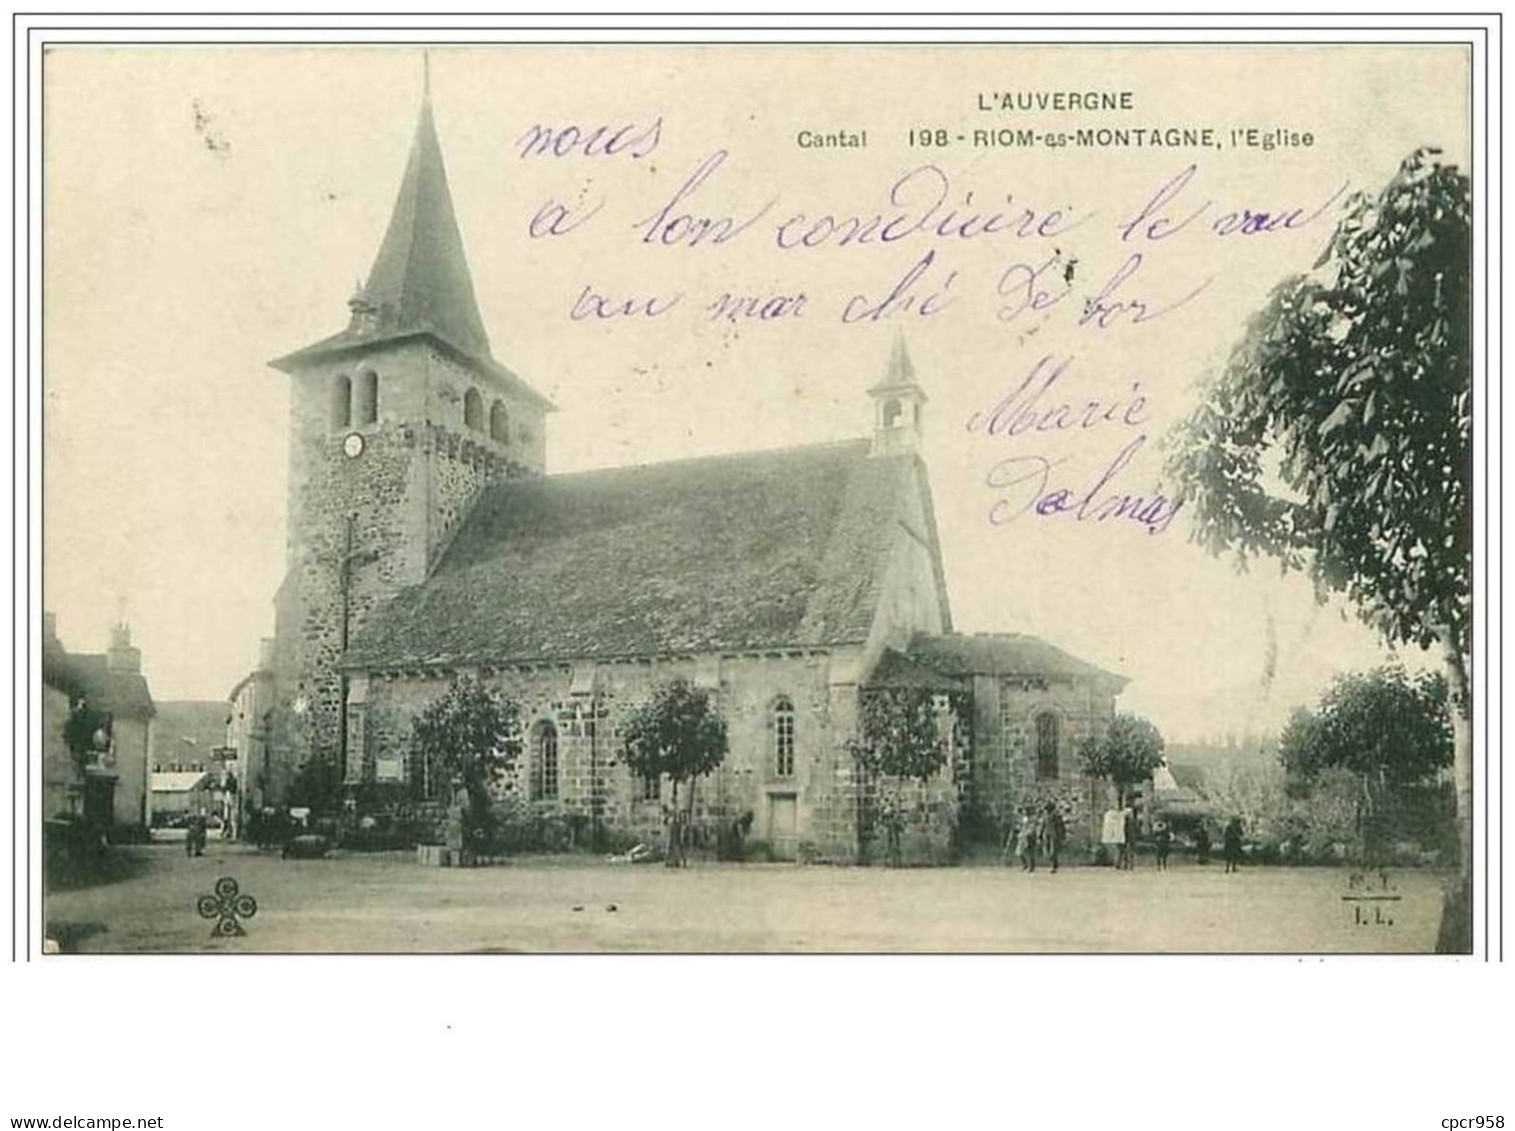 L'AUVERGNE
Cantal 198 - RIOM-es-MONTAGNE, l'Eglise
nous
a lon condiuire le vau
au mar ché de bor
Marie
Dalmas
M. T.
I. L.
delcampe.net
cpcr958